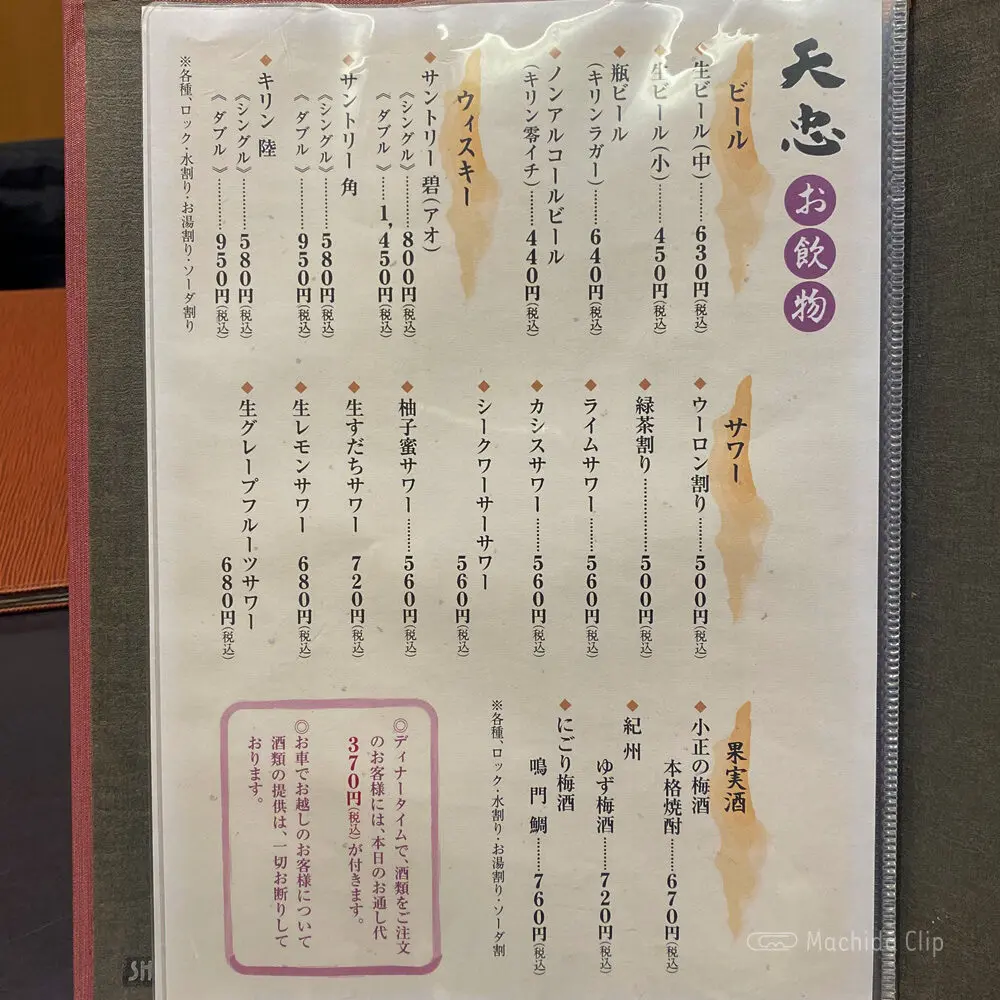 天忠
お飲物
ビール
◆生ビール(中)……630円(税込)
◆生ビール(小)……450円(税込)
◆瓶ビール
(キリンラガー)……640円(税込)
◆ノンアルコールビール
(キリン零イチ)……440円(税込)
ウィスキー
◆サントリー 碧(アオ)
《シングル》……800円(税込)
《ダブル》……1,450円(税込)
◆サントリー 角
《シングル》……580円(税込)
《ダブル》……950円(税込)
◆キリン 陸
《シングル》……580円(税込)
《ダブル》……950円(税込)
※各種、ロック・水割り・お湯割り・ソーダ割り
サワー
◆ウーロン割り……500円(税込)
◆緑茶割り……500円(税込)
◆ライムサワー……560円(税込)
◆カシスサワー……560円(税込)
◆シークワーサーサワー
560円(税込)
◆柚子蜜サワー……560円(税込)
◆生すだちサワー 720円(税込)
◆生レモンサワー 680円(税込)
◆生グレープフルーツサワー
680円(税込)
果実酒
◆小正の梅酒
本格焼酎……670円(税込)
◆紀州
ゆず梅酒……720円(税込)
◆にごり梅酒
鳴門鯛……760円(税込)
※各種、ロック・水割り・お湯割り・ソーダ割
◎ディナータイムで、酒類をご注文
のお客様には、本日のお通し代
370円(税込)が付きます。
◎お車でお越しのお客様について
酒類の提供は、一切お断りして
おります。
SH
Machida Clip